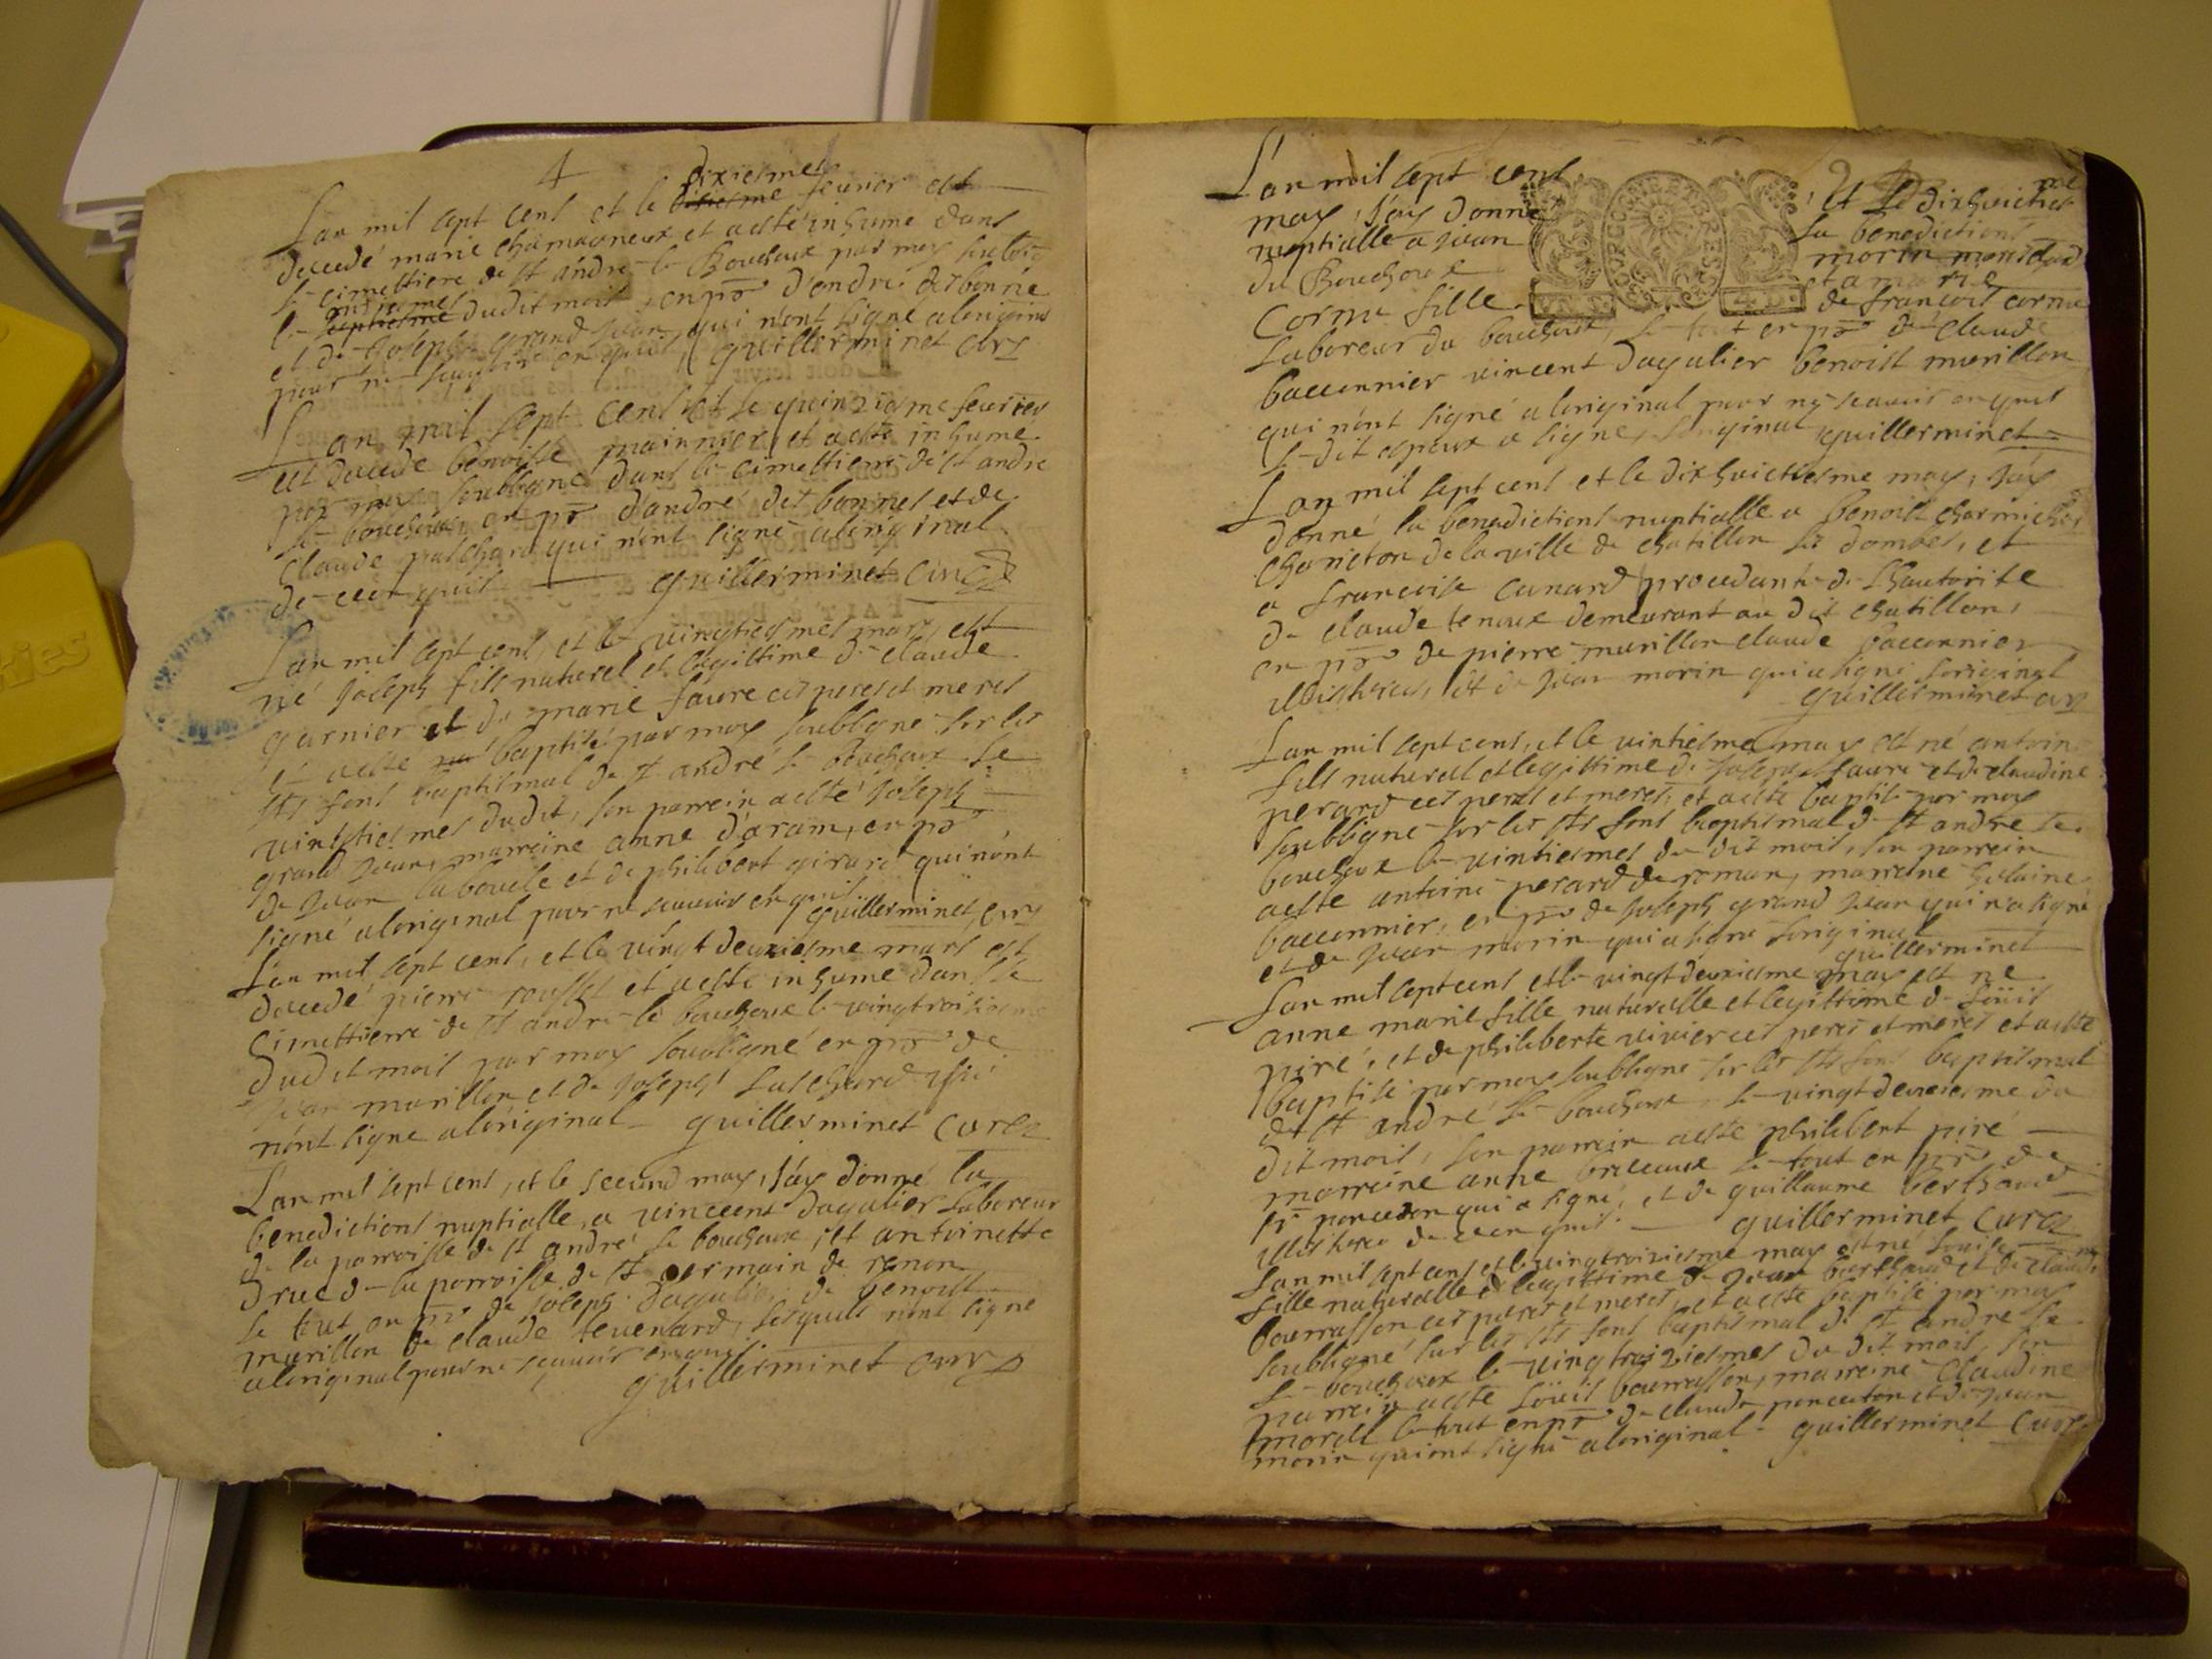 4
dixiesmes
Lan mil sept cens et le fevrier est
decedé marie chamagneux et aesté inhume dans
le cimettiere de st andré le Bouchoux par moy
onziesmes
le septiesme dudit mois, en pnce d'andré desbonne
et de Joseph grand Jean, qui n'ont signe aloriginal
pour ne scavoir enquis, guillerminet curé
Lan mil sept cens et le quinziesme fevrier
est decede benoiste mainnier, et aesté inhumé
par moy soubsigné dans le cimettiere de st andre
le bouchoux en pnce d'andré des bonnes et de
Claude qui n'ont signé aloriginal
de ce enquis guillerminet curé
Lan mil sept cens, et le vingtiesmes mars est
né Joseph fils naturel et legittime de claude
garnier et de marie faure ces peres et meres
et aesté baptisé par moy soubsigne sur les
sts fons baptismal de st andré le bouchoux le
vintiesmes dudit, son parrein aesté Joseph
grand Jean, marreine anne d'aram, en pnce
de Jean la boucle et de philibert girard qui n'ont
signé aloriginal pour ne scavoir enquis
guillerminet, curé
Lan mil sept cens, et le vingt deuxiesme mars est
decedé pierre rousset et aesté inhume dans le
Cimettierre de st andré le bouchoux le vingtroisiesme
dudit mois par moy soubsigné en pnce de
Jean murillon et de Joseph qui
n'ont signe aloriginal guillerminet Curé
Lan mil sept cens, et le second may, J'ay donné la
benedictions nuptialle, a vincent dagalier laboreur
de la parroisse de st andré le bouchoux, et antoinette
druc de la parroisse de st germain de renon
le tout en pnce de Joseph dagalier de benoist
murillon de claude tevenard, lesquels n'ont signe
aloriginal pour ne scavoir enquis
guillerminet curé
L'an mil sept cens
et le dixhuictiesme
may, J'ay donné
la benedictions
nuptialle a Jean
morin
du Bouchoux
et a marie
Cornu fille
de francois cornu
laboreur du bouchoux, le tout en pnce de claude
bacconnier vincent dagalier benoist murillon
qui n'ont signé aloriginal pour ne scavoir enquis
le dit espoux a signé, loriginal guillerminet
Lan mil sept cens et le dixhuictiesme may, J'ay
donné la benedictions nuptialle a benoist
de la ville de chatillon les dombes, et
a francoise canard procedante de Lhautorite
de claude demeurant au dit chatillon,
en pnce de pierre murillon claude baccornier
illisteres, et de Jean morin qui a signé loriginal
guillerminet curé
Lan mil sept cens, et le vintiesme may est né antoine
fils naturel et legittime de Joseph faure et de claudine
perard ces peres et meres, et aesté baptisé par moy
soubsigne sur les sts fons baptismal de st andré le
bouchoux le vintiesmes du dit mois, son parrein
aesté antoine perard de roman, marreine helaine
baccomnier, en pnce de Joseph grand Jean qui n'a signé
et de Jean morin qui a signé loriginal
guillerminet
Lan mil sept cens et le vingt deuxiesme may est né
anne marie fille naturelle et legittime de Loüis
piré, et de philiberte vivier ces peres et meres et aesté
baptisé par moy soubsigne sur les sts fons baptismal
de st andré le bouchoux, le vingt deuxiesme du
dit mois, son parrein aesté philibert piré
marreine anne le tout en pnce de
qui a signé, et de guillaume berthaud
illistere de ce enquis. guillerminet Curé
Lan mil sept cens et le vingtroisiesme may est né Louise
fille naturelle et legittime de Jean berthaud et de claudine
bourrasson ces peres et meres, et aesté baptisé par moy
soubsigné sur les sts fons baptismal de st andré le
le bouchoux le vingtroisiesmes du dit mois, son
parrein aesté Loüis bourrasson, marreine Claudine
morell le tout en pnce de claude et de Jean
morin qui ont signé aloriginal. guillerminet Curé